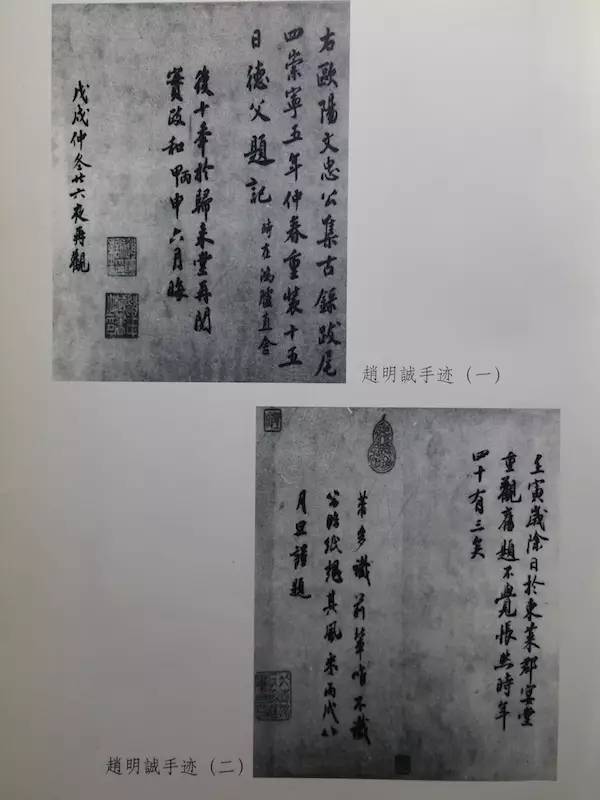 右歐陽文忠公集古錄跋尾
四崇寧五年仲春重裝十五
日德父題記
時在鴻臚直舍
後十年於歸来堂再閱
實政和甲丙申六月晦
戊戌仲冬廿六夜再觀
趙明誠手迹（一）
壬寅歲除日於東萊郡宴堂
重觀舊題不覺悵然時年
四十有三矣
多識前輩唯不識
公臨紙想其風采丙戌八
月旦謹題
趙明誠手迹（二）